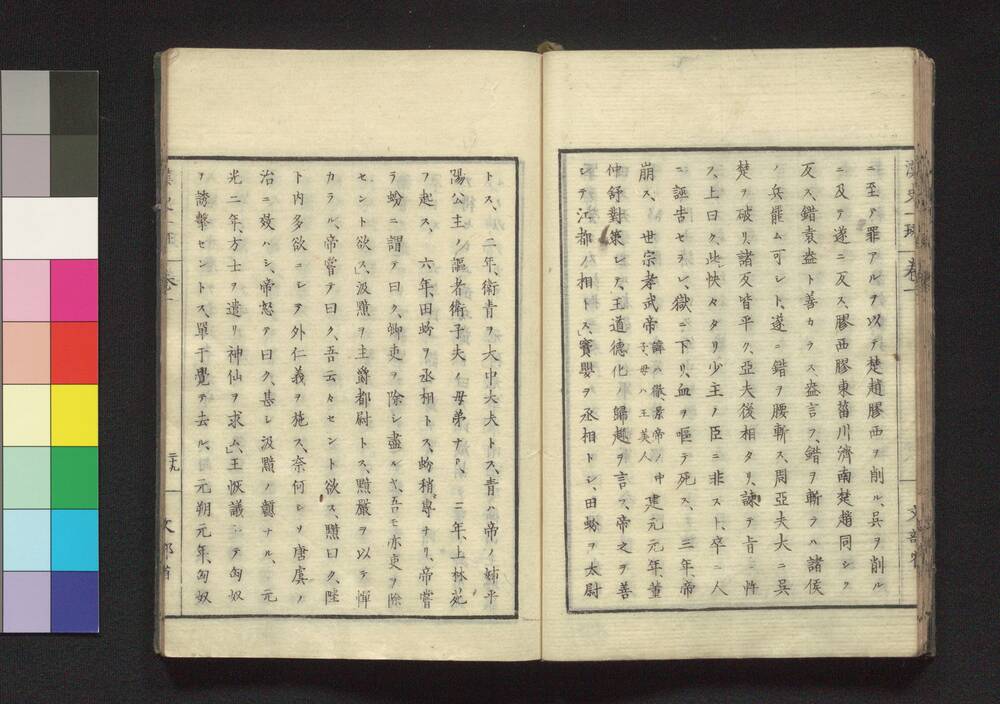 漢史一班 卷一
文部省
ニ至ノ罪アルヲ以テ楚趙膠西ヲ削ル、吳ヲ削ル
ニ及ヲ遂ニ反ス、膠西膠東菑川濟南楚趙同シク
反ス、錯袁盎ト善カラス、盎言フ、錯ヲ斬ラハ諸侯
ノ兵罷ム可シト、遂ニ錯ヲ腰斬ス、周亞夫大ニ吳
楚ヲ破リ、諸反皆平ク、亞夫後相タリ、諫テ旨ニ忤
ス、上曰ク、此怏々タリ少主ノ臣ニ非スト、卒ニ人
ニ誣吿セラレ、獄ニ下リ、血ヲ嘔テ死ス、 三年、帝
崩ス、 世宗孝武帝諱ハ徹景帝ノ中子、母ハ王美人 建元元年、董
仲舒對策シテ、王道德化ノ歸趣ヲ言フ、帝之ヲ善
シテ江都ノ相トス、竇嬰ヲ丞相トシ、田蚡ヲ太尉
トス、 二年、衛青ヲ大中大夫トス、青ハ帝ノ姉平
陽公主ノ謳者衛子夫ノ母弟ナリ、 三年、上林苑
ヲ起ス、 六年、田蚡ヲ丞相トス、蚡稍專ナリ、帝嘗
ラ蚡ニ謂テ曰ク、卿吏ヲ除シ盡ルヤ、吾モ亦吏ヲ除
セント欲ス、汲黯ヲ主爵都尉トス、黯嚴ヲ以テ憚
カラル、帝嘗テ曰ク、吾云々セント欲ス、黯曰ク、陛
下内多欲ニシテ外仁義ヲ施ス、奈何シソ唐虞ノ
治ニ效ハン、帝怒テ曰ク、甚シ汲黯ノ戇ナル、 元
光二年、方士ヲ遣リ神仙ヲ求ム、王恢議シテ匈奴
ヲ誘擊セントス、單于覺テ去ル、 元朔元年、匈奴
卷一
三十九
文部省